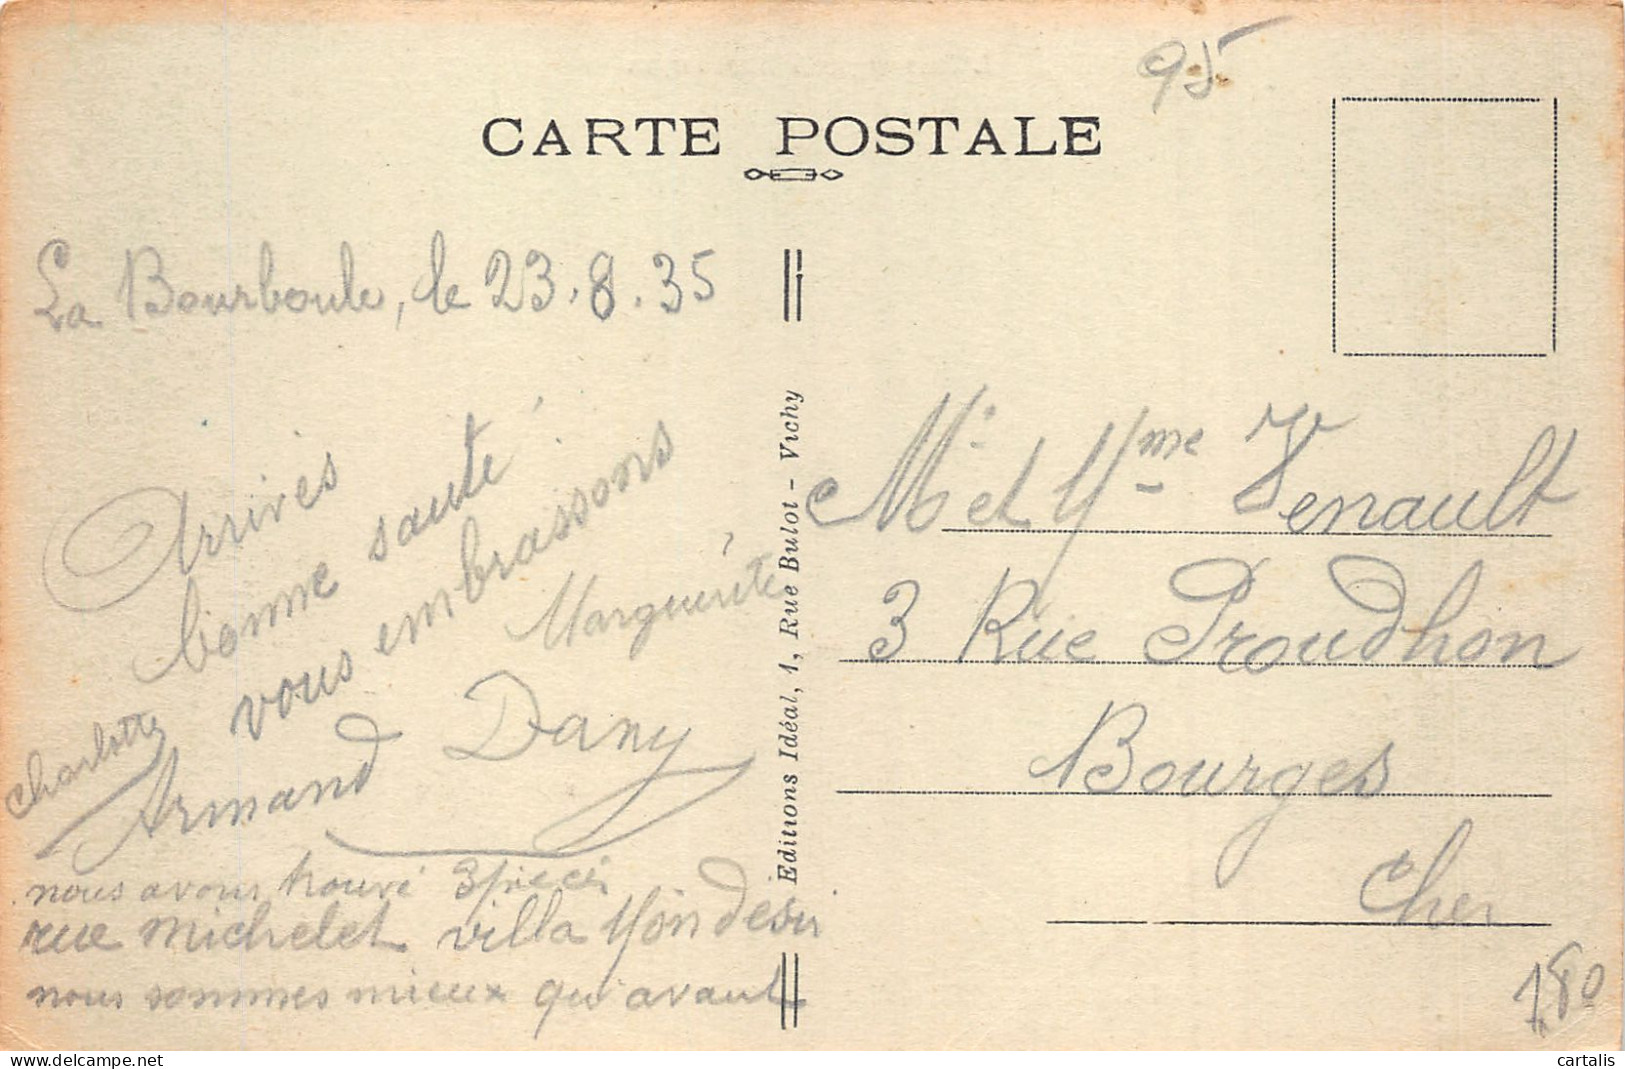 95
CARTE POSTALE
La Bourboule, le 23.8.35
Arrivés
bonne santé
vous embrassons
Marguerite
Charlotte
Armand Dany
nous avons trouvé 3 pièces
rue Michelet villa Mon désir
nous sommes mieux qu'avant
Editions Idéal, 1, Rue Bulot - Vichy
Mr et Mme Venault
3 Rue Proudhon
Bourges
Cher
180
cartalis